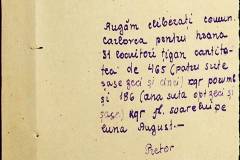 Rugăm eliberați comun.
Carlovca pentru hrana
31 locuitori țigan cantita-
tea de 465 (patru sute
șase zeci și cinci) kgr porumb
și 186 (una suta opt zeci și
șase) kgr fl. soarelui pe
luna August.—
Pretor